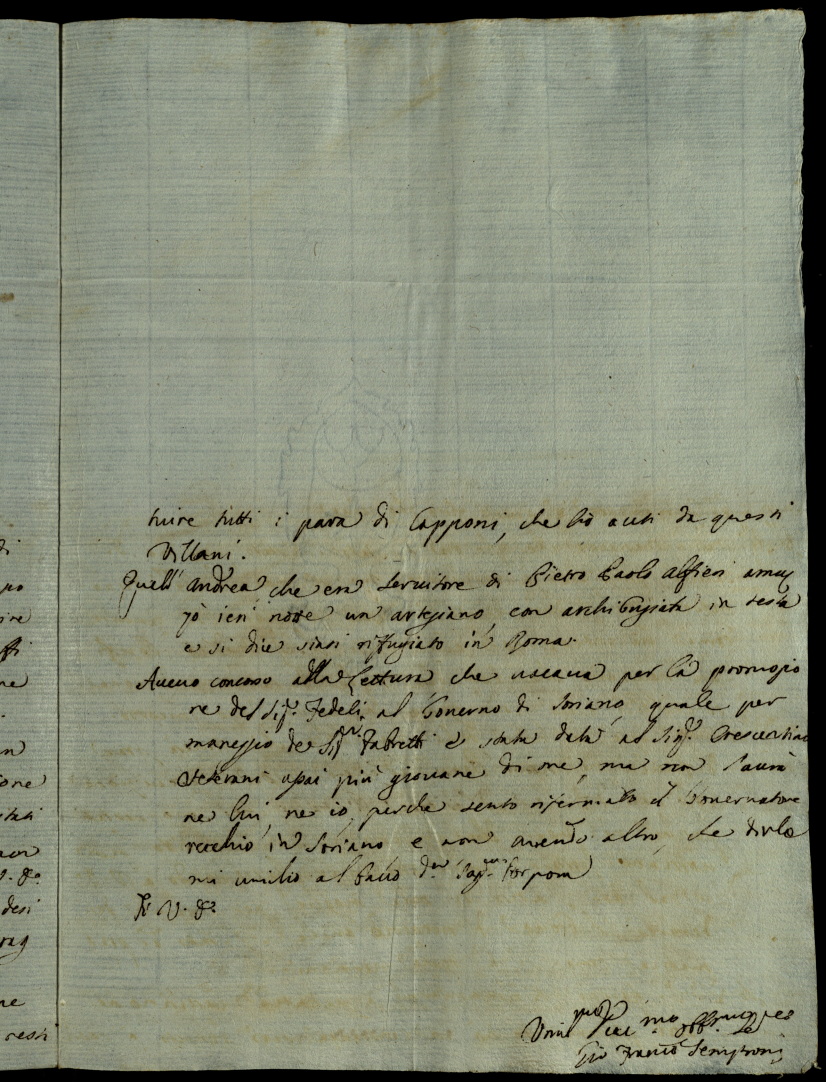 di
po
ire
ffi
ne
n
ione
stati
V. Sa.
desi
rag
ne
ressi
tuire tutti i para di Capponi, che hò auti da questi
Villani.
Quell' Andrea che era seruitore di Pietro Paolo Alfieri amaz
zò ieri notte un artegiano, con archibugiata in testa
e si dice siasi rifugiato in Roma.
Aueuo concorso alla Lettura che uacaua per la promozio
ne del Sigr. Fedeli al Gouerno di Soriano, quale per
maneggio de Sigri. Fabretti è stata data al Sigr. Crescentino
Veterani assai più giouane di me, ma non l'aurà
ne lui, ne io, perche sento rifermato il Gouernatore
vecchio in Soriano e non auendo altro, che dirle
mi umilio al bacio della Sag.
Di V. Sa.
Umilmo
Gio Francco Semproni